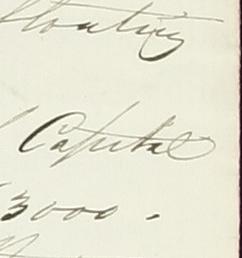 floating
Capital
3000.